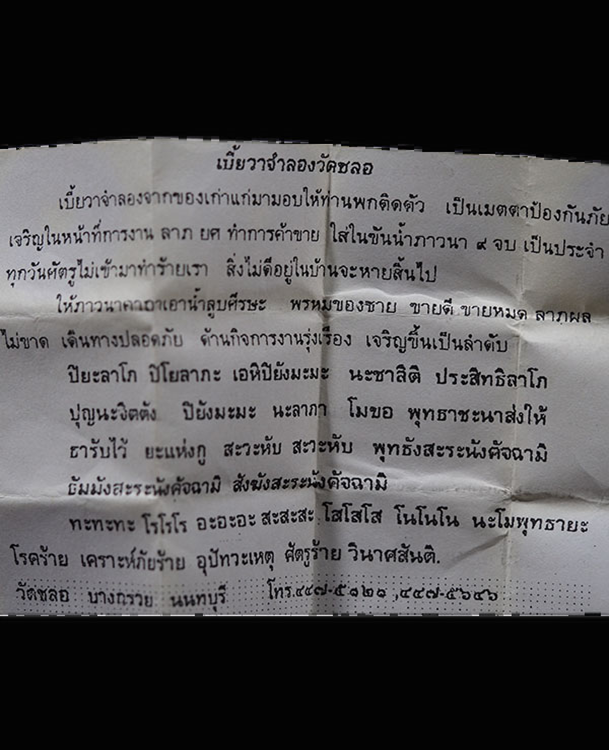 เบี้ยวาจำลองวัดชลอ
เบี้ยวาจำลองจากของเก่าแก่มามอบให้ท่านพกติดตัว เป็นเมตตาป้องกันภัย
เจริญในหน้าที่การงาน ลาภ ยศ ทำการค้าขาย ใส่ในขันน้ำภาวนา ๙ จบ เป็นประจำ
ทุกวันศัตรูไม่เข้ามาทำร้ายเรา สิ่งไม่ดีอยู่ในบ้านจะหายสิ้นไป
ให้ภาวนาคาถาเอาน้ำลูบศีรษะ พรหมของขาย ขายดี ขายหมด ลาภผล
ไม่ขาด เดินทางปลอดภัย ด้านกิจการงานรุ่งเรือง เจริญขึ้นเป็นลำดับ
ปิยะลาโภ ปิโยลาภะ เอหิปิยังมะมะ นะชาลิติ ประสิทธิลาโภ
ปุญนะงิตตัง ปิยังมะมะ นะลาภา โมขอ พุทธาชะนาส่งให้
ธารับไว้ ยะแห่งกู สะวะหับ สะวะหับ พุทธังสะระนังคัจฉามิ
ธัมมังสะระนังคัจฉามิ สังฆังสะระนังคัจฉามิ
ทะทะทะ โรโรโร อะอะอะ สะสะสะ โสโสโส โนโนโน นะโมพุทธายะ
โรคร้าย เคราะห์ภัยร้าย อุปัทวะเหตุ ศัตรูร้าย วินาศสันติ.
วัดชลอ บางกรวย นนทบุรี โทร.๔๔๗-๕๑๒๑ ,๔๔๗-๕๖๔๖